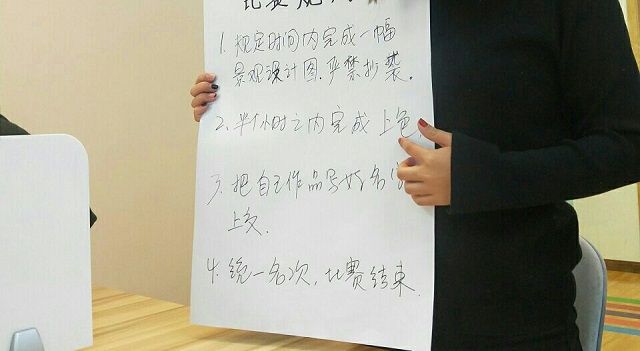 比赛规
1. 规定时间内完成一幅
景观设计图,严禁抄袭。
2. 半个小时之内完成上色
3. 把自己作品写好名字
上交.
4. 统一名次,比赛结束.